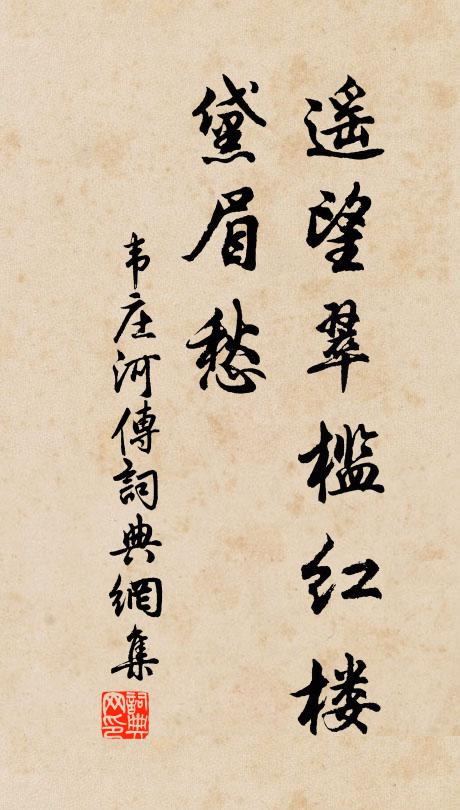 遥望翠槛红楼
黛眉愁
韦庄河傳詞典網集
詞典网印